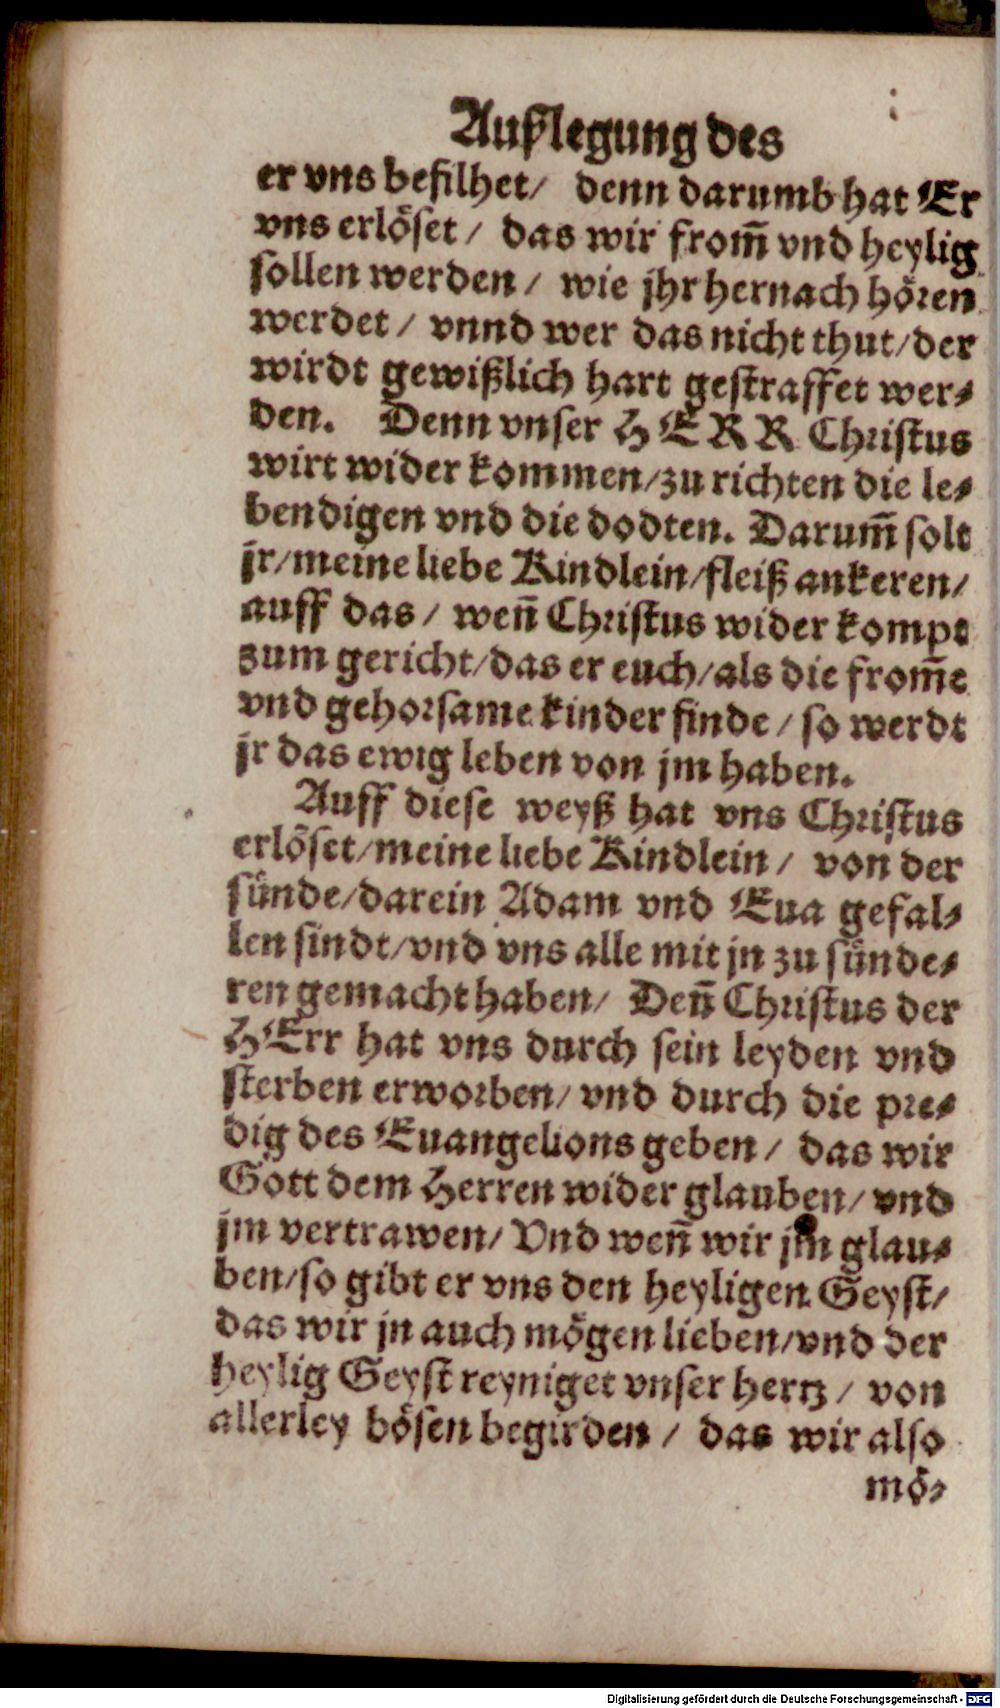 Außlegung des
er vns befilhet/ denn darumb hat Er
vns erlöset/ das wir from̃ vnd heylig
sollen werden/ wie jhr hernach hören
werdet/ vnnd wer das nicht thut/der
wirdt gewißlich hart gestraffet wer⸗
den. Denn vnser HERR Christus
wirt wider kommen/zu richten die le⸗
bendigen vnd die dodten. Darum̃ solt
jr/meine liebe Kindlein/fleiß ankeren/
auff das/ weñ Christus wider kompt
zum gericht/das er euch/als die from̃e
vnd gehorsame kinder finde/ so werdt
jr das ewig leben von jm haben.
Auff diese weyß hat vns Christus
erlöset/meine liebe Kindlein/ von der
sünde/darein Adam vnd Eua gefal⸗
len sindt/vnd vns alle mit jn zu sünde⸗
ren gemacht haben/ Deñ Christus der
HErr hat vns durch sein leyden vnd
sterben erworben/ vnd durch die pre⸗
dig des Euangelions geben/ das wir
Gott dem Herren wider glauben/ vnd
jm vertrawen/ Vnd weñ wir jm glau⸗
ben/so gibt er vns den heyligen Geyst/
das wir jn auch mögen lieben/vnd der
heylig Geyst reyniget vnser hertz/ von
allerley bösen begirden/ das wir also
mö⸗
Digitalisierung gefördert durch die Deutsche Forschungsgemeinschaft - DFG